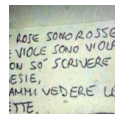 ROSE SONO ROSSE
E VIOLE SONO VIOL
ON SO' SCRIVERE
ESIE,
AMMI VEDERE LE
ETTE.